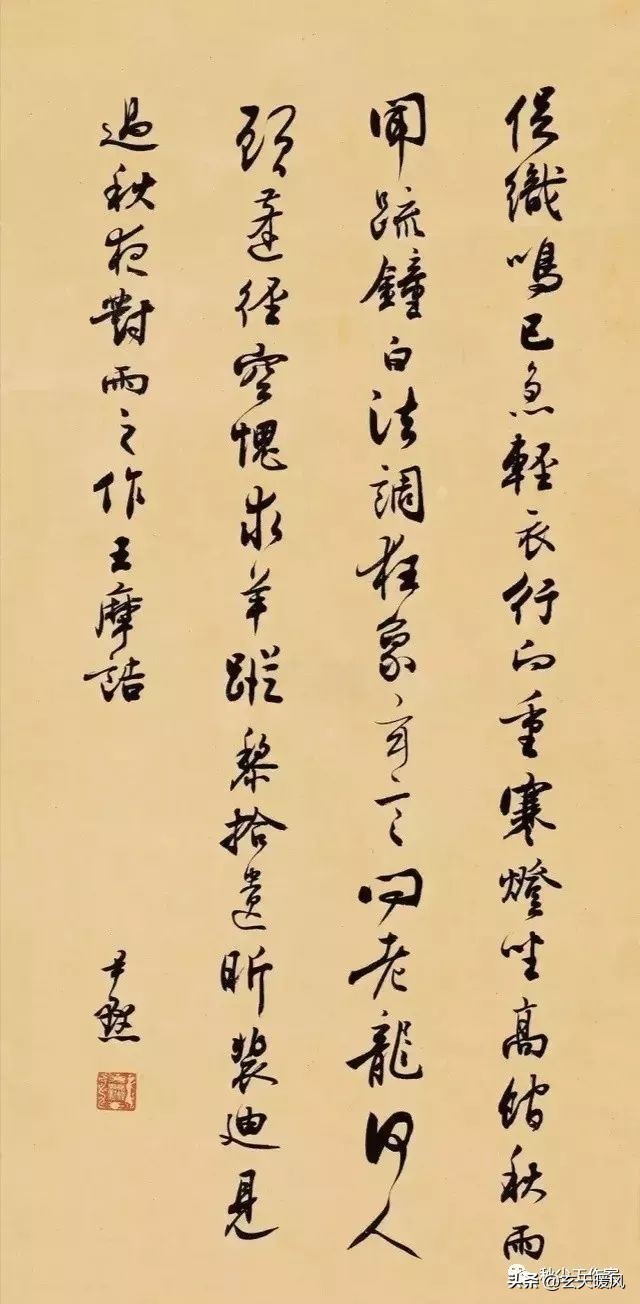 促織鳴已急輕衣行向重寒燈坐高館秋雨
聞疏鐘白法調狂象玄言問老龍何人
顧蓬徑空愧求羊蹤黎拾遺昕裴迪見
過秋夜對雨之作王摩詰
尹默
头条 @玄天暖风